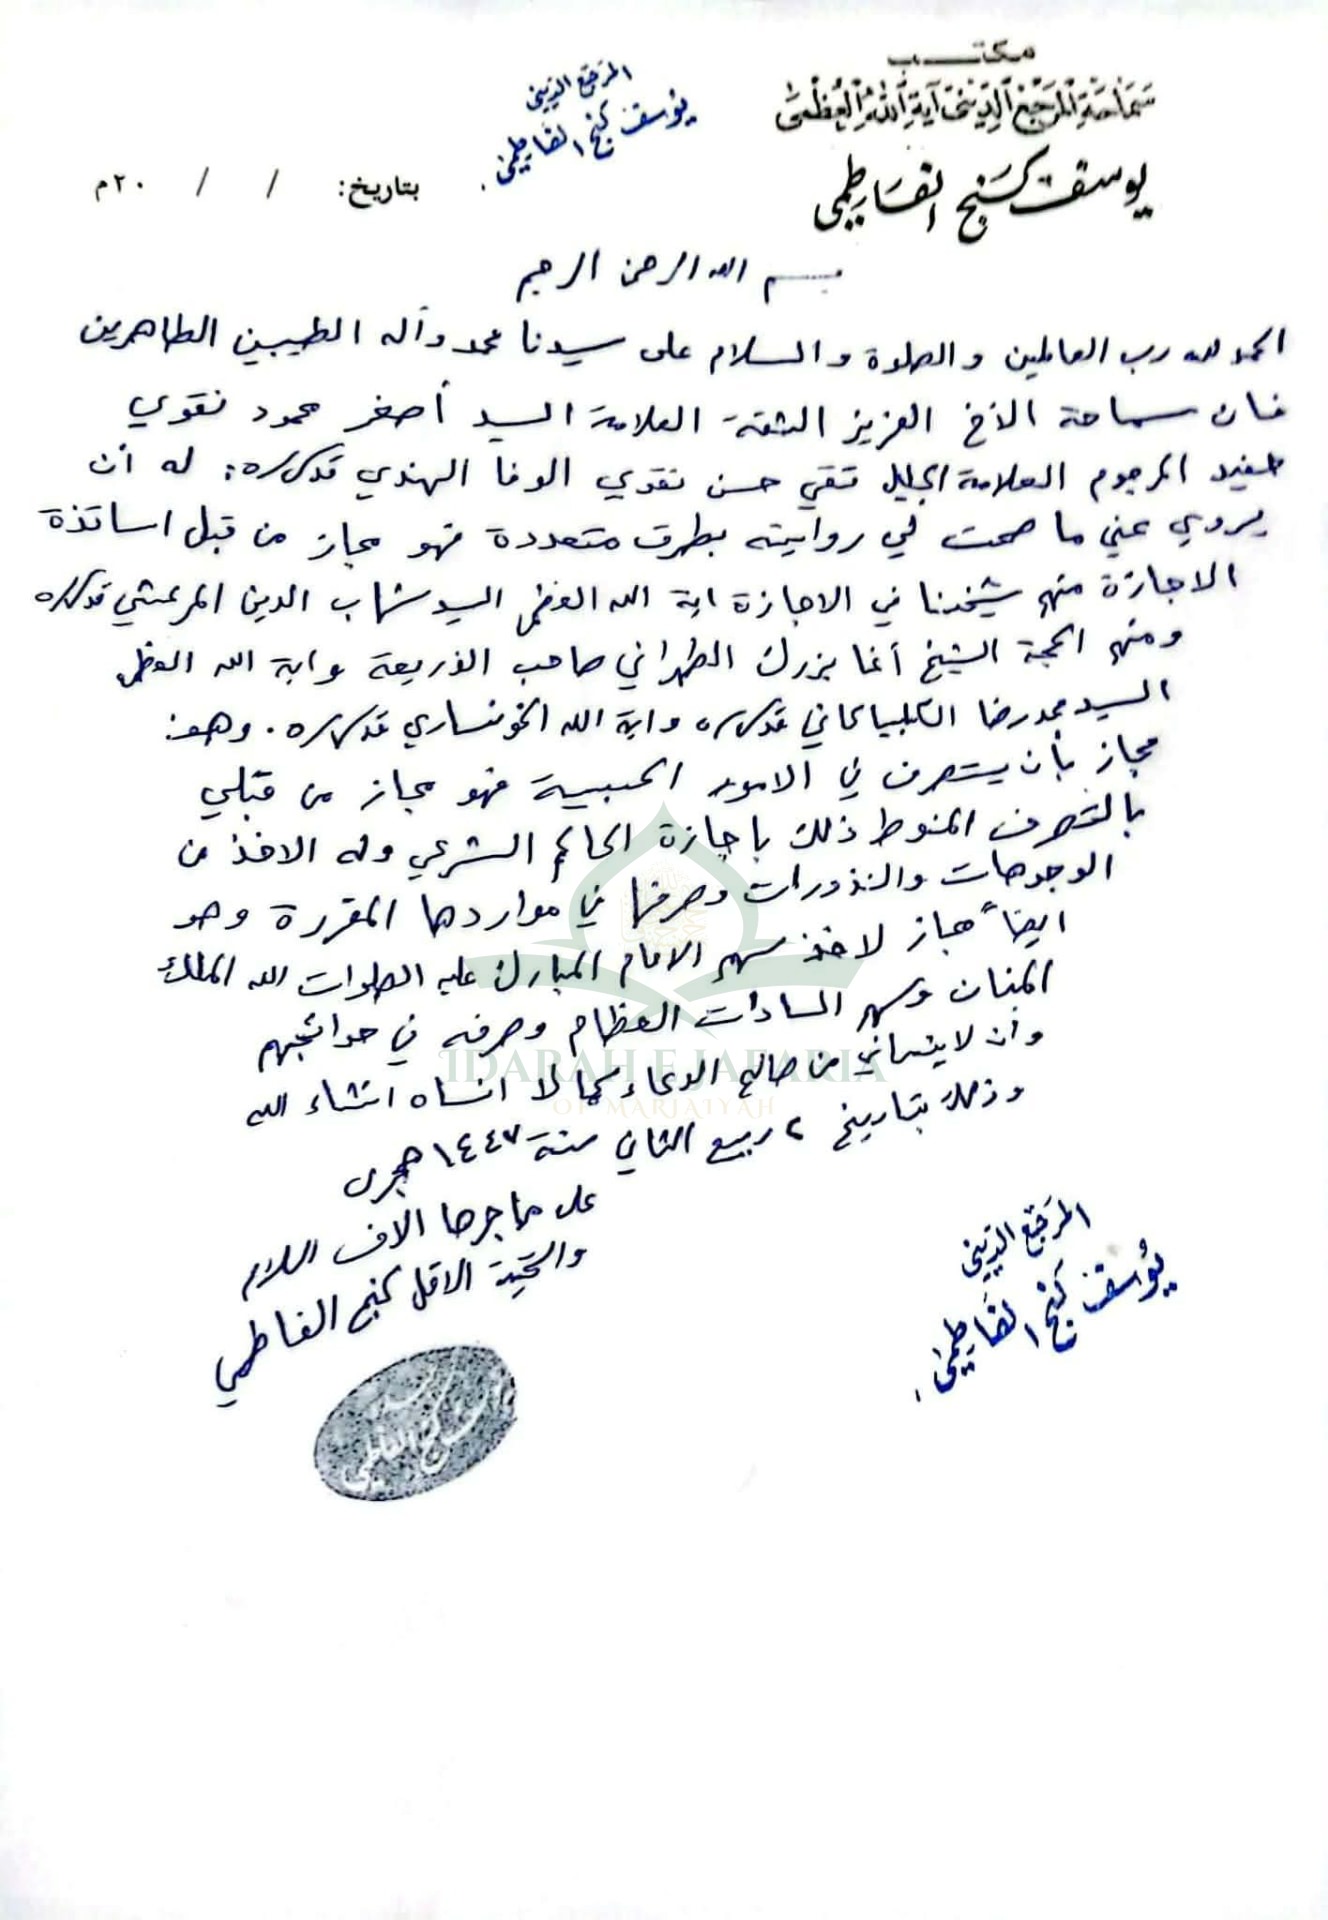 مكتب
سماحة المرجع الديني آية الله العظمى
يوسف كنج الفاطمي
المرجع الديني
يوسف كنج الفاطمي
بتاريخ: / / ٢٠م
بسم الله الرحمن الرحيم
الحمد لله رب العالمين والصلوة والسلام على سيدنا محمد وآله الطيبين الطاهرين
فان سماحة الأخ العزيز الثقة العلامة السيد أصغر محمود نقوي
حفيد المرحوم العلامة الجليل تقي حسن نقوي الوفا الهندي قدس سره: له أن
يروي عني ما صحت لي روايته بطرق متعددة فهو مجاز من قبل اساتذة
الاجازة منهم شيخنا في الاجازة اية الله العظمى السيد شهاب الدين المرعشي قدس سره
ومنهم الحجة الشيخ أغا بزرك الطهراني صاحب الذريعة واية الله العظمى
السيد محمد رضا الكلبايكاني قدس سره واية الله الخونساري قدس سره. وهو:
مجاز بأن يتصرف في الامور الحسبية فهو مجاز من قبلي
بالتصرف المنوط ذلك باجازة الحاكم الشرعي وله الاخذ من
الوجوهات والنذورات وصرفها في مواردها المقررة وهو
ايضاً مجاز لاخذ سهم الامام المبارك عليه الصلوات الله الملك
المنان وسهم السادات العظام وصرفه في حوائجهم
وأن لاينساني من صالح الدعاء كما لا انساه انشاء الله
وذلك بتاريخ ٢ ربيع الثاني سنة ١٤٤٧ هجرى
على مهاجرها الاف السلام
والتحية الاقل كنج الفاطمي
المرجع الديني
يوسف كنج الفاطمي
يوسف كنج الفاطمي
IDARAH E JAFARIA
OF MARJAIYAH